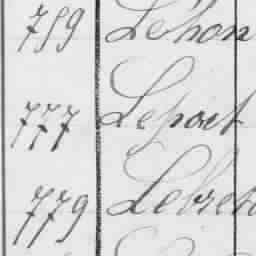 759 Léhon
777 Leport
779 Lebreto